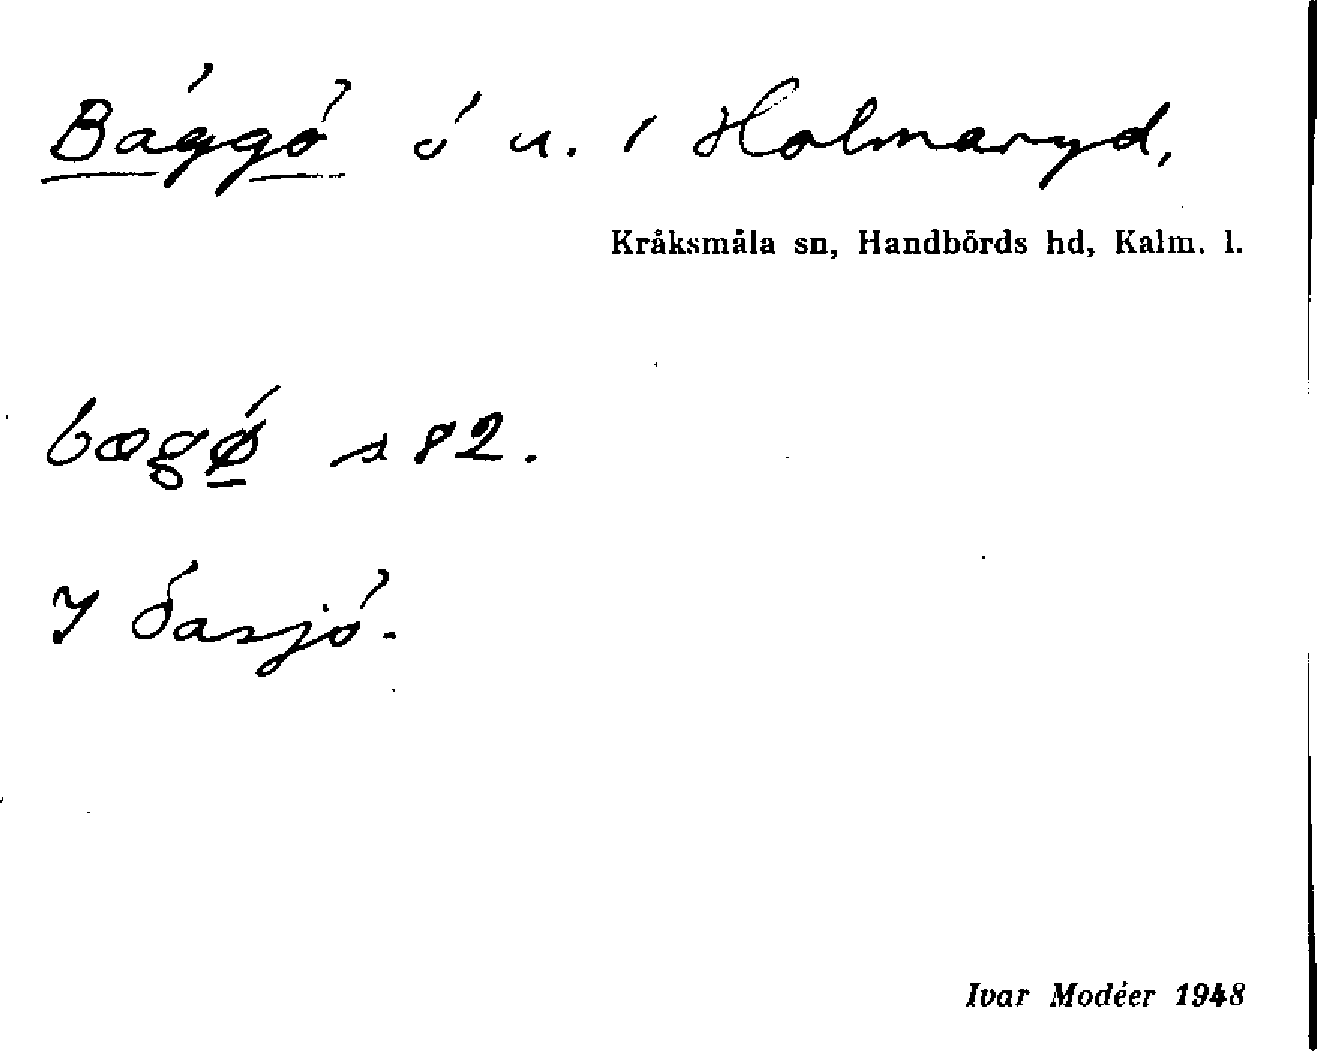 Bäggö ö u. i Holmaryd,
Kråksmåla sn, Handbörds hd, Kalm. l.
bægø̱ 82.
I Öasjö.
Ivar Modéer 1948